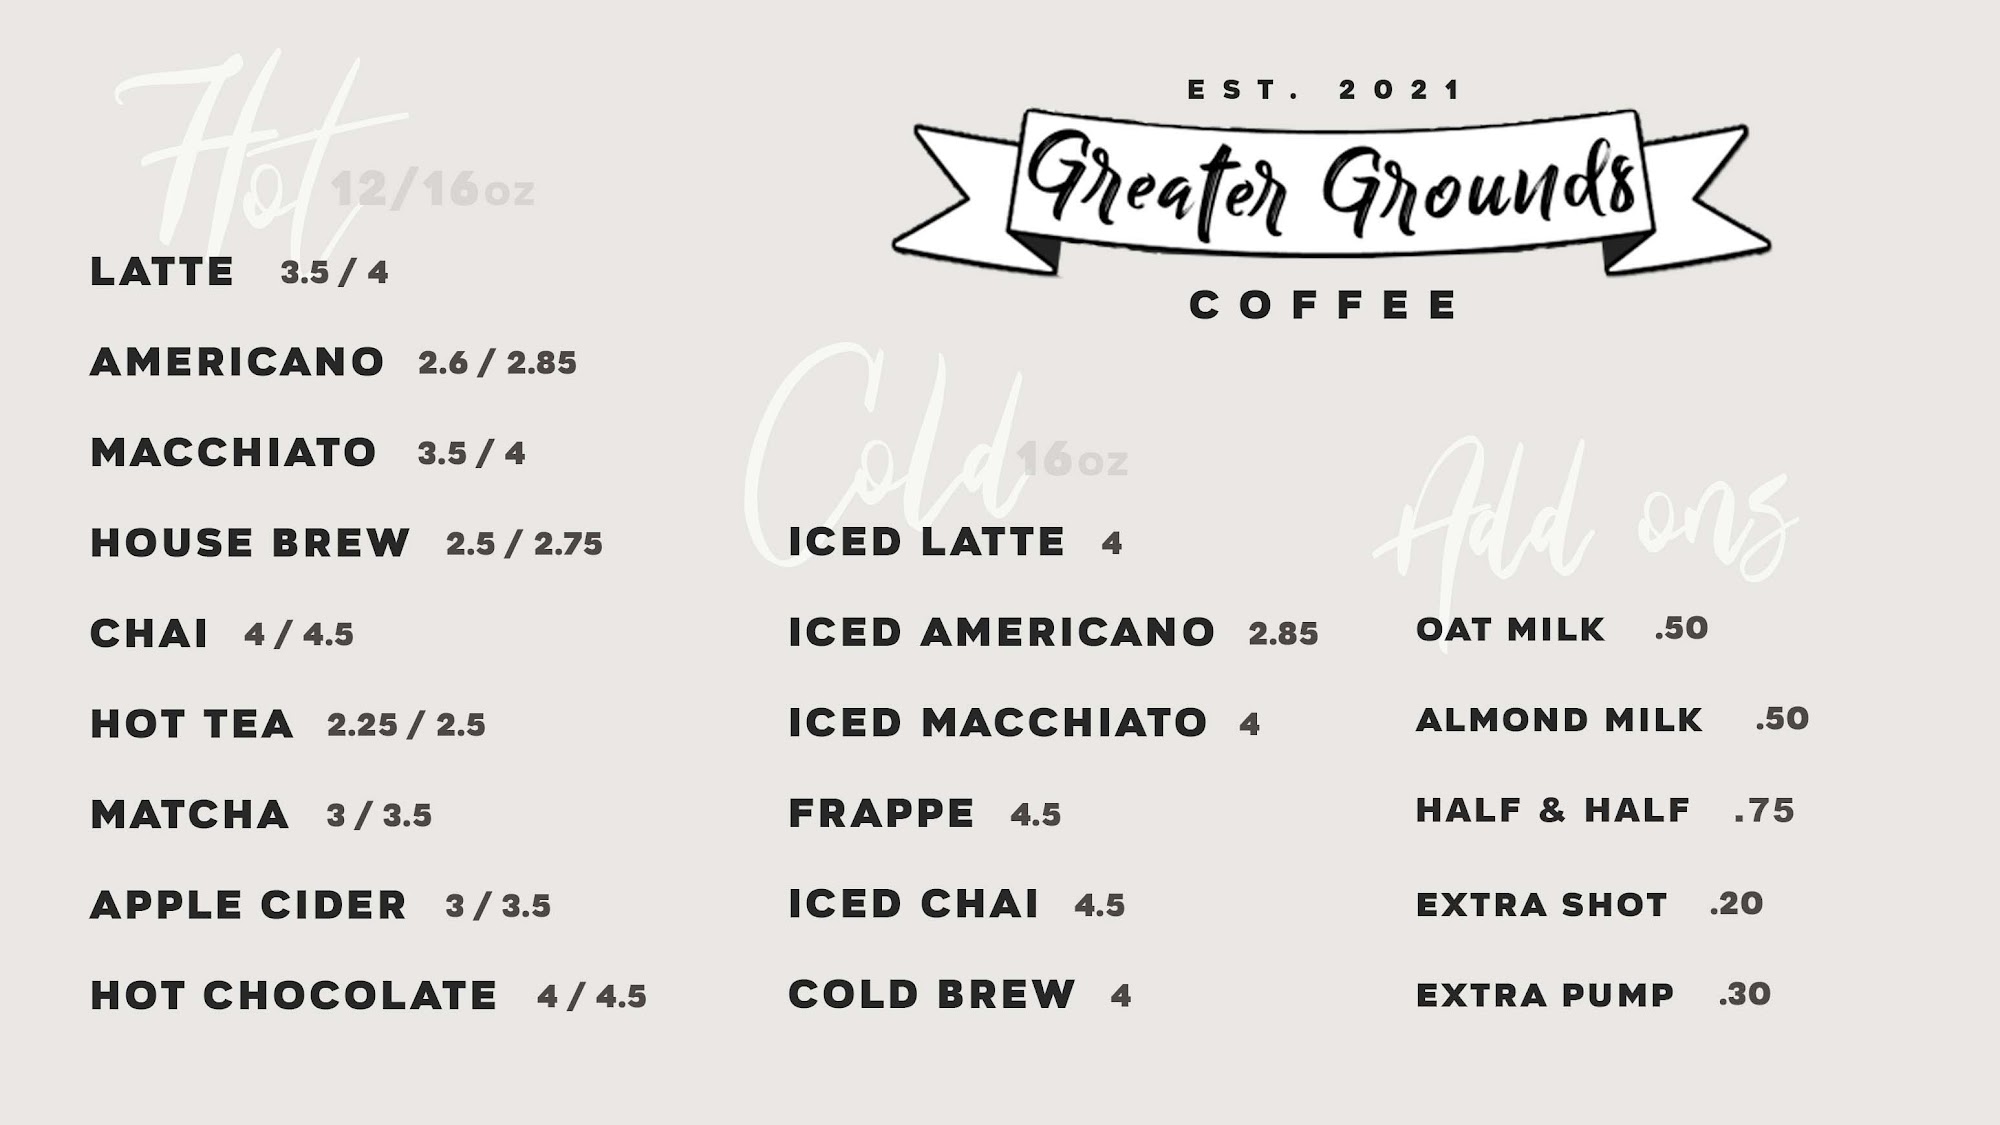 Hot 12/16oz
LATTE 3.5 / 4
AMERICANO 2.6 / 2.85
MACCHIATO 3.5 / 4
HOUSE BREW 2.5 / 2.75
CHAI 4 / 4.5
HOT TEA 2.25 / 2.5
MATCHA 3 / 3.5
APPLE CIDER 3 / 3.5
HOT CHOCOLATE 4 / 4.5
EST. 2021
Greater Grounds
COFFEE
Cold 16oz
ICED LATTE 4
ICED AMERICANO 2.85
ICED MACCHIATO 4
FRAPPE 4.5
ICED CHAI 4.5
COLD BREW 4
Add ons
OAT MILK .50
ALMOND MILK .50
HALF & HALF .75
EXTRA SHOT .20
EXTRA PUMP .30